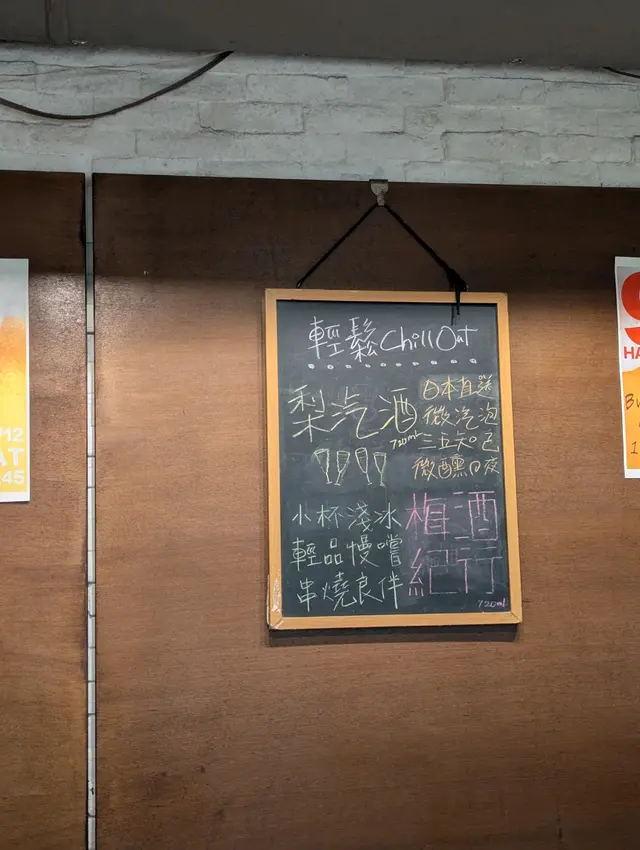 輕鬆 Chill Out
梨汽酒
720ml
日本直送
微汽泡
三五知己
微醺日夜
小杯淺冰
輕品慢嚐
串燒良伴
梅酒
紀行
720ml
/12
AT
.45
HA